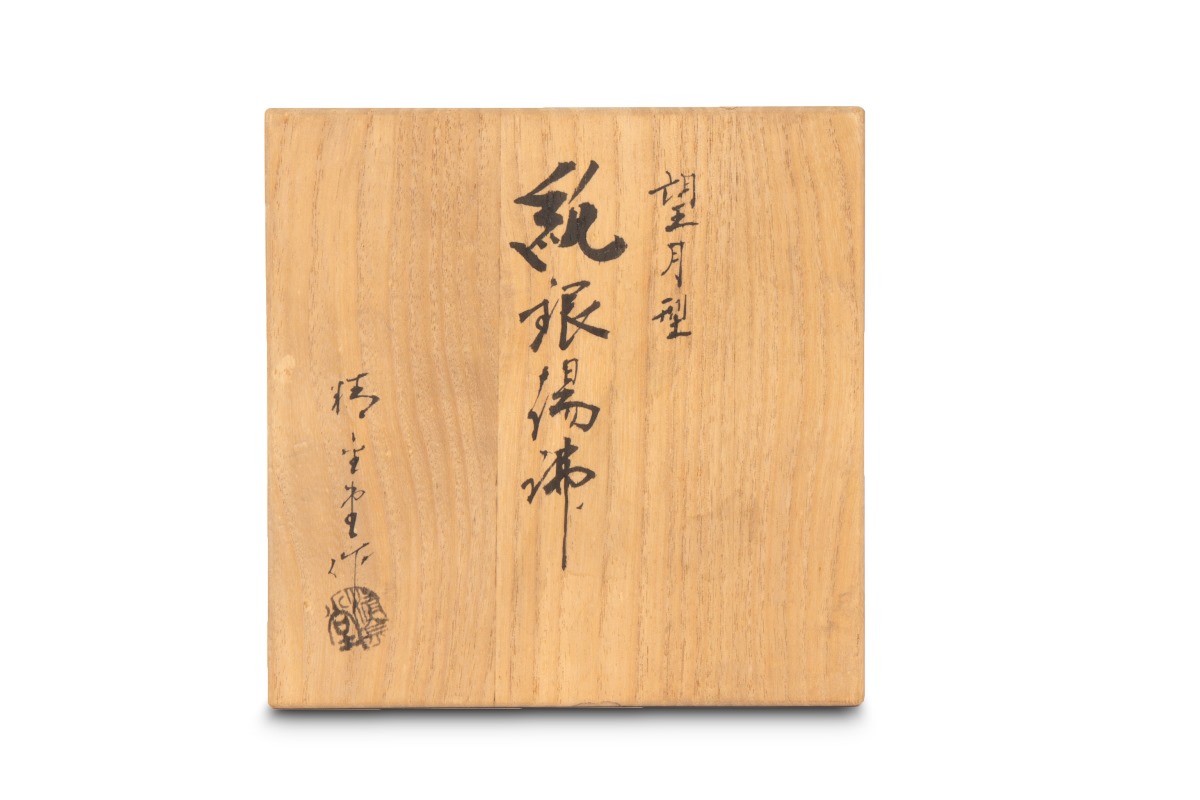 望月型
純銀湯沸
精金堂作